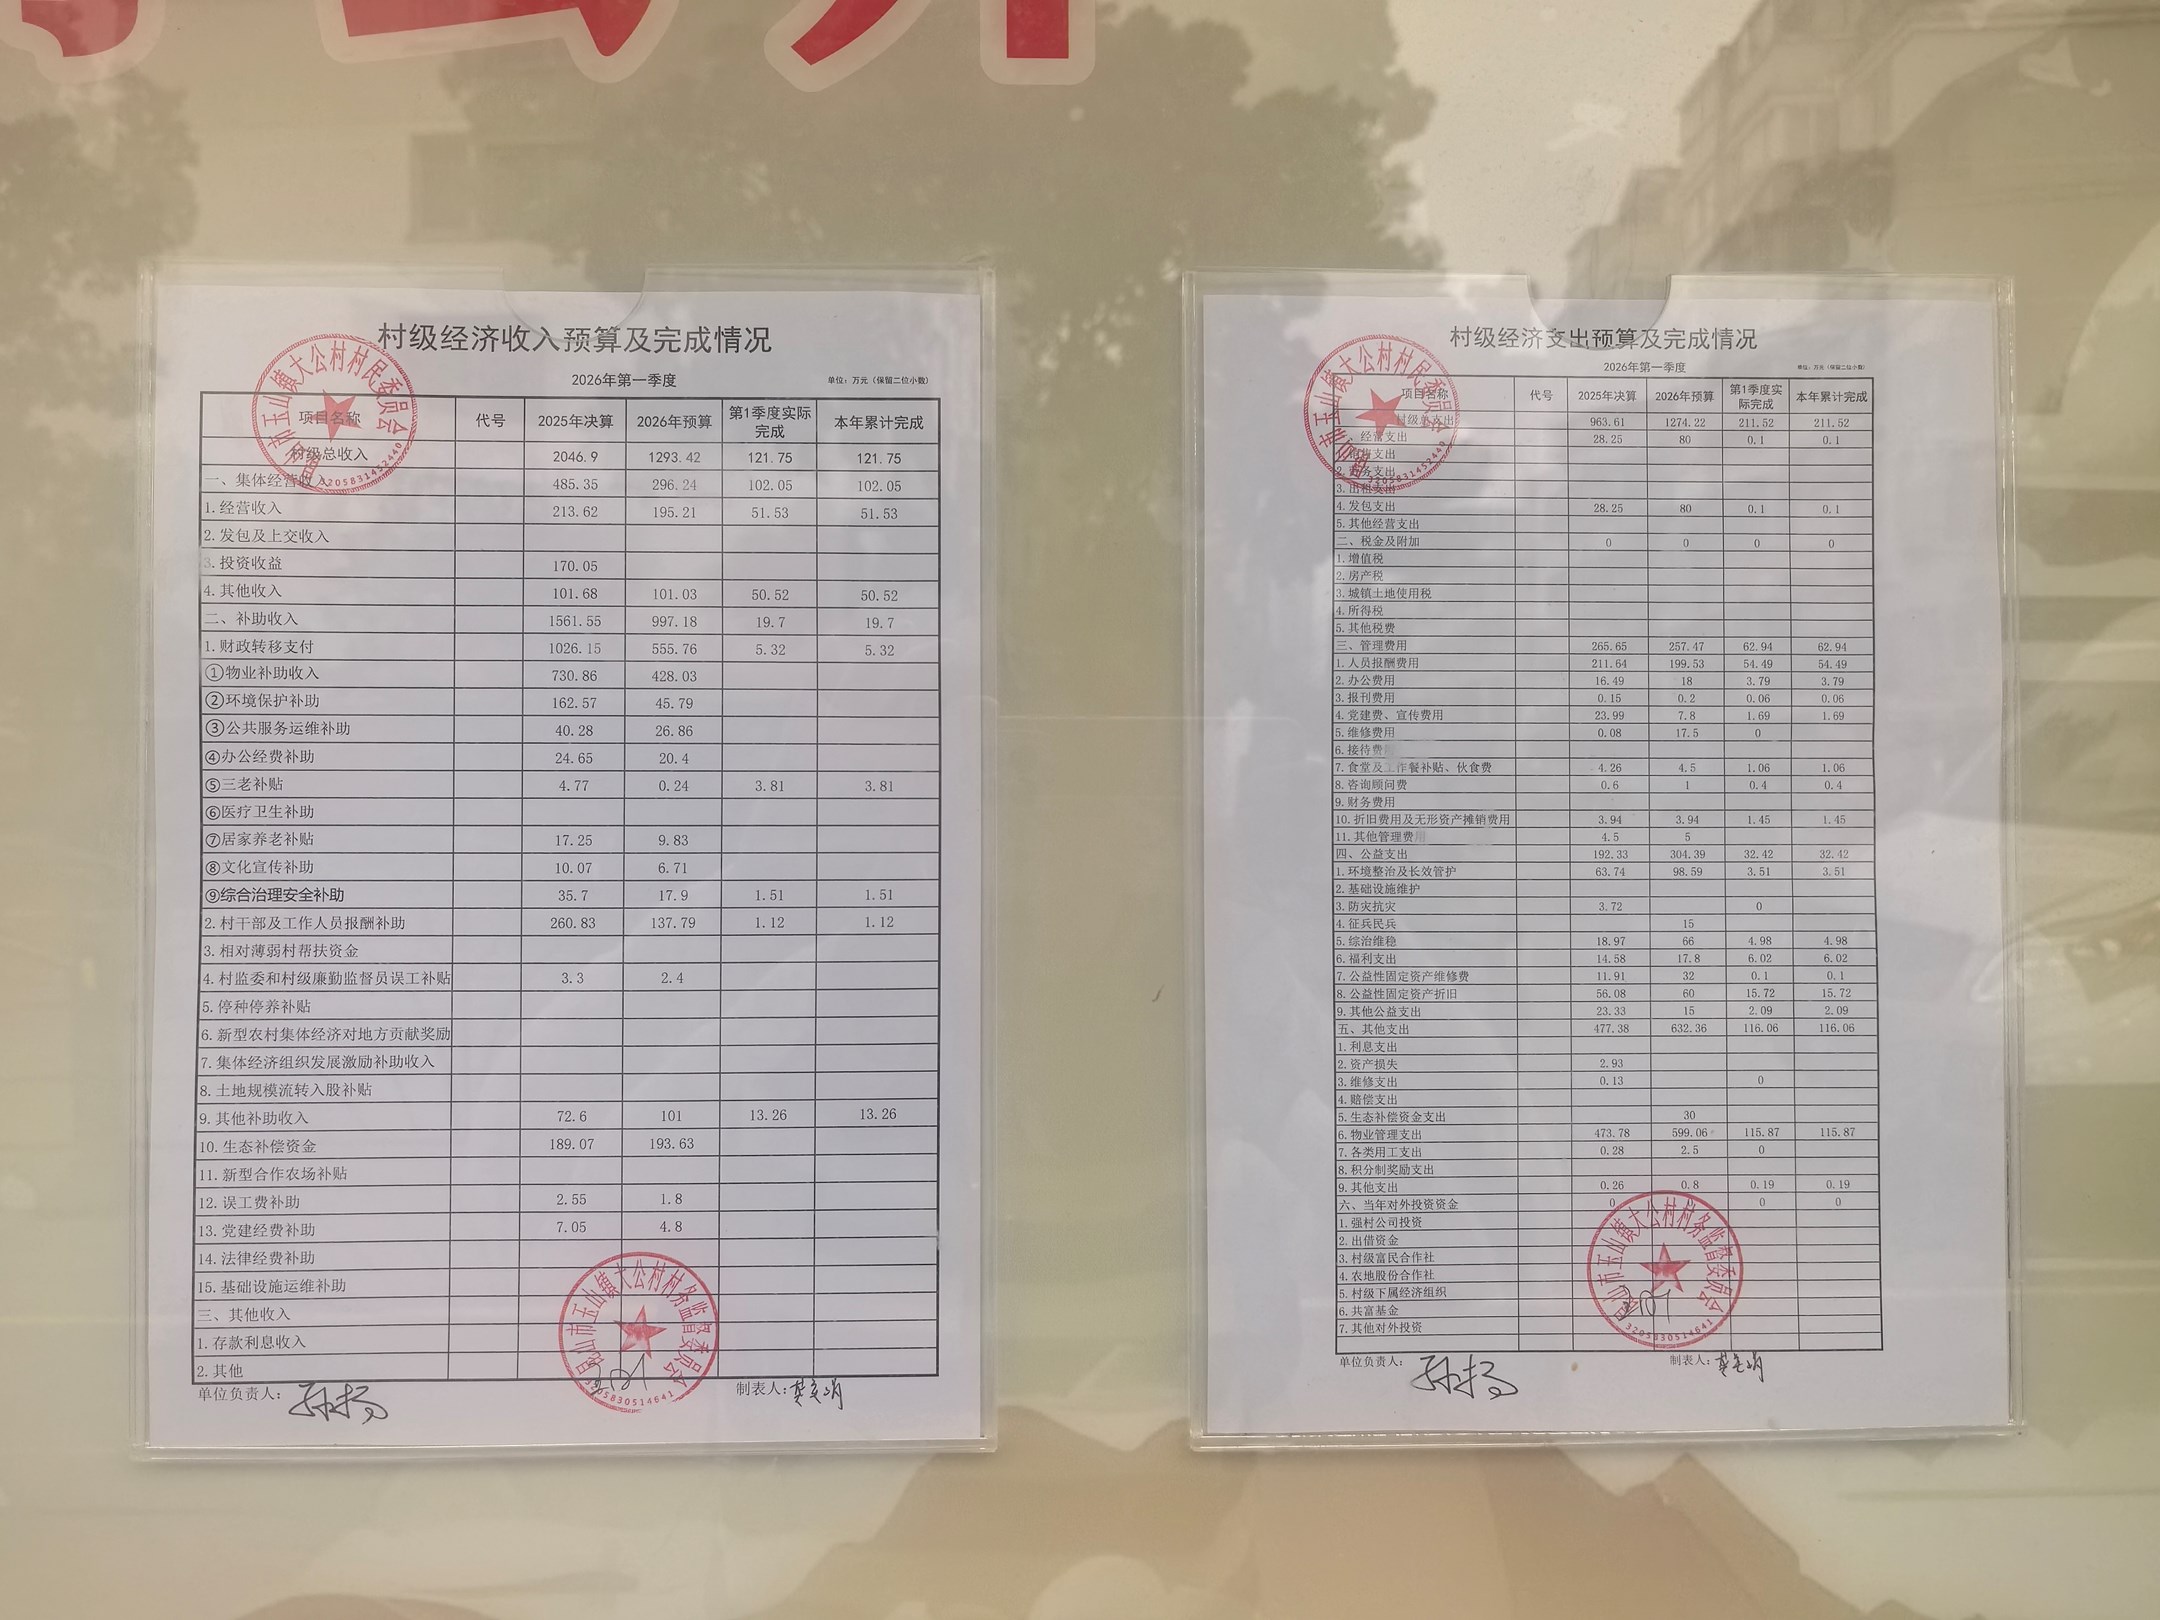 村级经济收入预算及完成情况
2026年第一季度 单位：万元（保留二位小数）
项目名称 代号 2025年决算 2026年预算 第1季度实际完成 本年累计完成
村级总收入 2046.9 1293.42 121.75 121.75
一、集体经营收入 485.35 296.24 102.05 102.05
1.经营收入 213.62 195.21 51.53 51.53
2.发包及上交收入
3.投资收益 170.05
4.其他收入 101.68 101.03 50.52 50.52
二、补助收入 1561.55 997.18 19.7 19.7
1.财政转移支付 1026.15 555.76 5.32 5.32
①物业补助收入 730.86 428.03
②环境保护补助 162.57 45.79
③公共服务运维补助 40.28 26.86
④办公经费补助 24.65 20.4
⑤三老补贴 4.77 0.24 3.81 3.81
⑥医疗卫生补助
⑦居家养老补贴 17.25 9.83
⑧文化宣传补助 10.07 6.71
⑨综合治理安全补助 35.7 17.9 1.51 1.51
2.村干部及工作人员报酬补助 260.83 137.79 1.12 1.12
3.相对薄弱村帮扶资金
4.村监委和村级廉勤监督员误工补贴 3.3 2.4
5.停种停养补贴
6.新型农村集体经济对地方贡献奖励
7.集体经济组织发展激励补助收入
8.土地规模流转入股补贴
9.其他补助收入 72.6 101 13.26 13.26
10.生态补偿资金 189.07 193.63
11.新型合作农场补贴
12.误工费补助 2.55 1.8
13.党建经费补助 7.05 4.8
14.法律经费补助
15.基础设施运维补助
三、其他收入
1.存款利息收入
2.其他
单位负责人： 制表人：
市玉山镇大公村村民委员会
3205831452440
昆山市玉山镇大公村村务监督委员会
3205830514641
村级经济支出预算及完成情况
2026年第一季度 单位：万元（保留二位小数）
项目名称 代号 2025年决算 2026年预算 第1季度实际完成 本年累计完成
村级总支出 963.61 1274.22 211.52 211.52
经营支出 28.25 80 0.1 0.1
支出
2. 务支出
3.出租支出
4.发包支出 28.25 80 0.1 0.1
5.其他经营支出
二、税金及附加 0 0 0 0
1.增值税
2.房产税
3.城镇土地使用税
4.所得税
5.其他税费
三、管理费用 265.65 257.47 62.94 62.94
1.人员报酬费用 211.64 199.53 54.49 54.49
2.办公费用 16.49 18 3.79 3.79
3.报刊费用 0.15 0.2 0.06 0.06
4.党建费、宣传费用 23.99 7.8 1.69 1.69
5.维修费用 0.08 17.5 0
6.接待费用
7.食堂及工作餐补贴、伙食费 4.26 4.5 1.06 1.06
8.咨询顾问费 0.6 1 0.4 0.4
9.财务费用
10.折旧费用及无形资产摊销费用 3.94 3.94 1.45 1.45
11.其他管理费用 4.5 5
四、公益支出 192.33 304.39 32.42 32.42
1.环境整治及长效管护 63.74 98.59 3.51 3.51
2.基础设施维护
3.防灾抗灾 3.72 0
4.征兵民兵 15
5.综治维稳 18.97 66 4.98 4.98
6.福利支出 14.58 17.8 6.02 6.02
7.公益性固定资产维修费 11.91 32 0.1 0.1
8.公益性固定资产折旧 56.08 60 15.72 15.72
9.其他公益支出 23.33 15 2.09 2.09
五、其他支出 477.38 632.36 116.06 116.06
1.利息支出
2.资产损失 2.93
3.维修支出 0.13 0
4.赔偿支出
5.生态补偿资金支出 30
6.物业管理支出 473.78 599.06 115.87 115.87
7.各类用工支出 0.28 2.5 0
8.积分制奖励支出
9.其他支出 0.26 0.8 0.19 0.19
六、当年对外投资资金 0 0 0 0
1.强村公司投资
2.出借资金
3.村级富民合作社
4.农地股份合作社
5.村级下属经济组织
6.共富基金
7.其他对外投资
单位负责人： 制表人：
市玉山镇大公村村民委员会
3205831452440
昆山市玉山镇大公村村务监督委员会
3205830514641